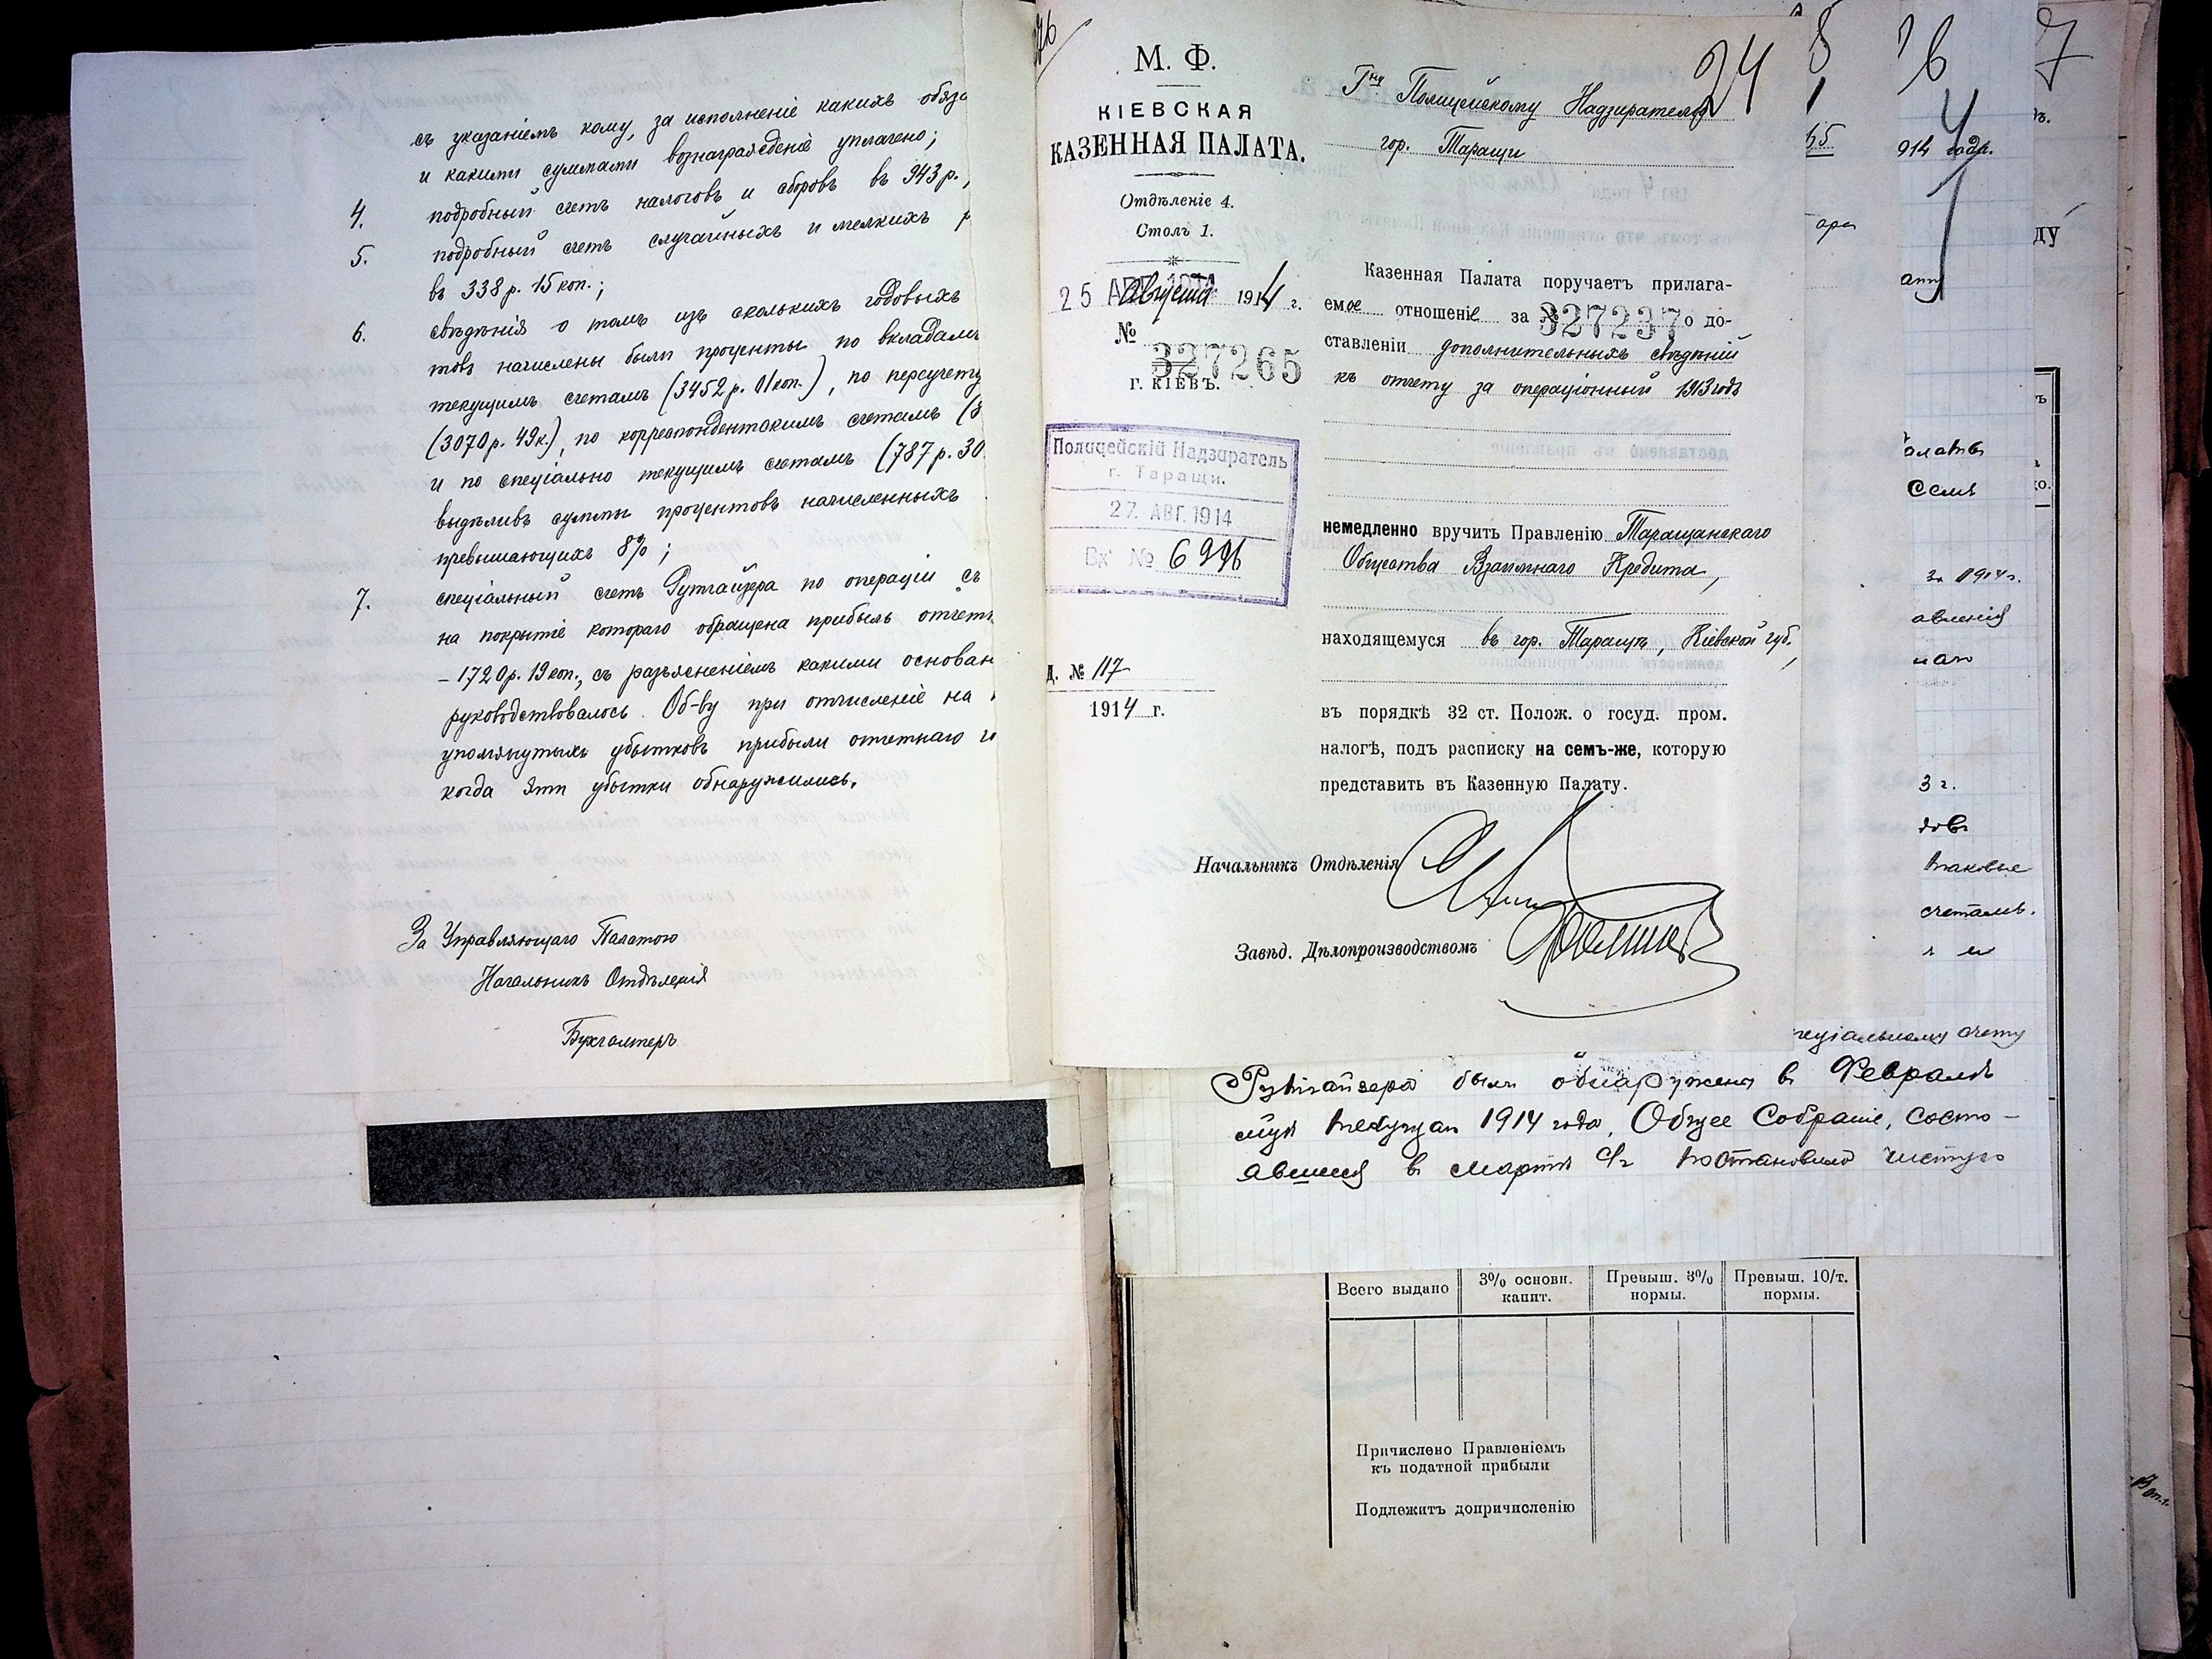 съ указаніемъ кому, за исполненіе какихъ обяза
и какими суммами вознагражденіе уплачено;
4. подробный счетъ налоговъ и сборовъ въ 943 р.,
5. подробный счетъ случайныхъ и мелкихъ р
въ 338 р. 15 коп.;
6. свѣдѣнія о томъ изъ сколькихъ годовыхъ
товъ начислены были проценты по вкладамъ
текущимъ счетамъ (3452 р. 01 коп.), по переучету
(3070 р. 49 к.), по корреспондентскимъ счетамъ (8
и по спеціально текущимъ счетамъ (787 р. 30
выдѣливъ суммы процентовъ начисленныхъ
превышающихъ 8%;
7. спеціальный счетъ Рутгайзера по операціи съ
на покрытіе котораго обращена прибыль отчетн
– 1720 р. 19 коп., съ разъясненіемъ какими основан
руководствовалось Об-ву при отчисленіе на
упомянутыхъ убытковъ прибыли отчетнаго го
когда эти убытки обнаружились.
За Управляющаго Палатою
Начальникъ Отдѣленія
Бухгалтеръ
М. Ф.
КІЕВСКАЯ
КАЗЕННАЯ ПАЛАТА.
Отдѣленіе 4.
Столъ 1.
25 Августа 1914 г.
№ 327265
г. КІЕВЪ.
Полицейскій Надзиратель
г. Таращи.
27. АВГ. 1914
Вх № 6996
Д. № 117
1914 г.
24
Гну Полицейскому Надзирателю
гор. Таращи
Казенная Палата поручаетъ прилага-
емое отношеніе за № 327237 о до-
ставленіи дополнительныхъ свѣдѣній
къ отчету за операціонный 1913 годъ
немедленно вручить Правленію Таращанскаго
Общества Взаимнаго Кредита,
находящемуся въ гор. Таращѣ, Кіевской губ.,
въ порядкѣ 32 ст. Полож. о госуд. пром.
налогѣ, подъ расписку на семъ-же, которую
представить въ Казенную Палату.
Начальникъ Отдѣленія
Завѣд. Дѣлопроизводствомъ
6
7
914 года.
65.
ду
алаты
семъ
за 1914 г.
авленія
3 г.
довъ
таковые
счетамъ.
и
пеціальному счету
Рутгайзера были обнаружены въ Февралѣ
мѣс. текущаго 1914 года, Общее Собраніе, состо-
авшееся въ Мартѣ с/г постановило чистую
Всего выдано
3% основн. капит.
Превыш. 3% нормы.
Превыш. 10/т. нормы.
Причислено Правленіемъ
къ податной прибыли
Подлежитъ допричисленію